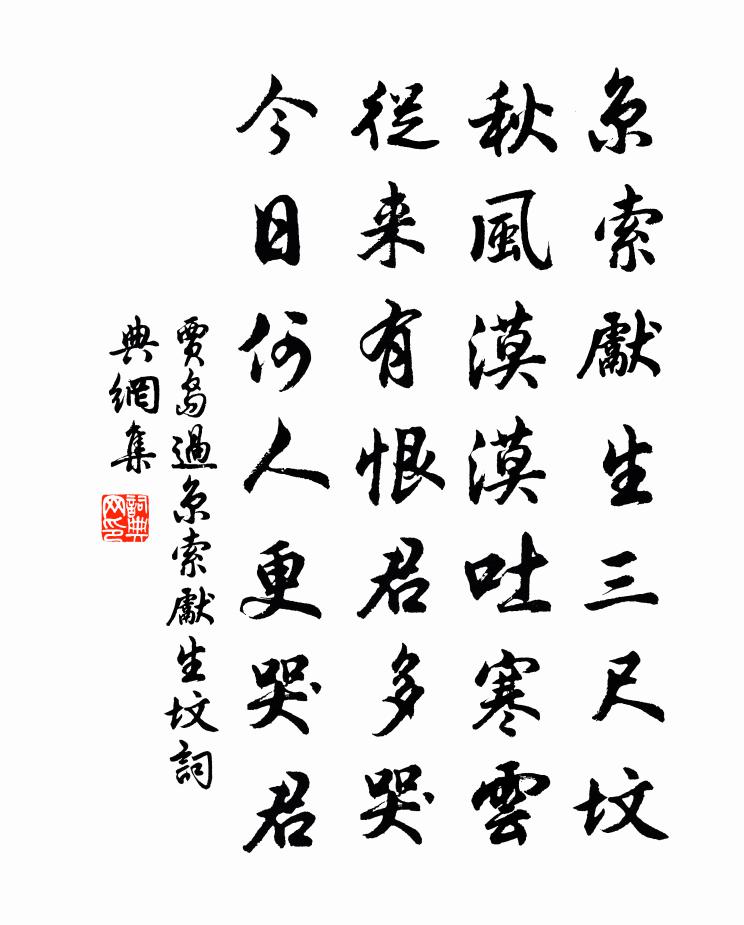 京索獻生三尺坟
秋風漠漠吐寒雲
從来有恨君多哭
今日何人更哭君
賈島過京索獻生坟詞
典網集
詞典網印